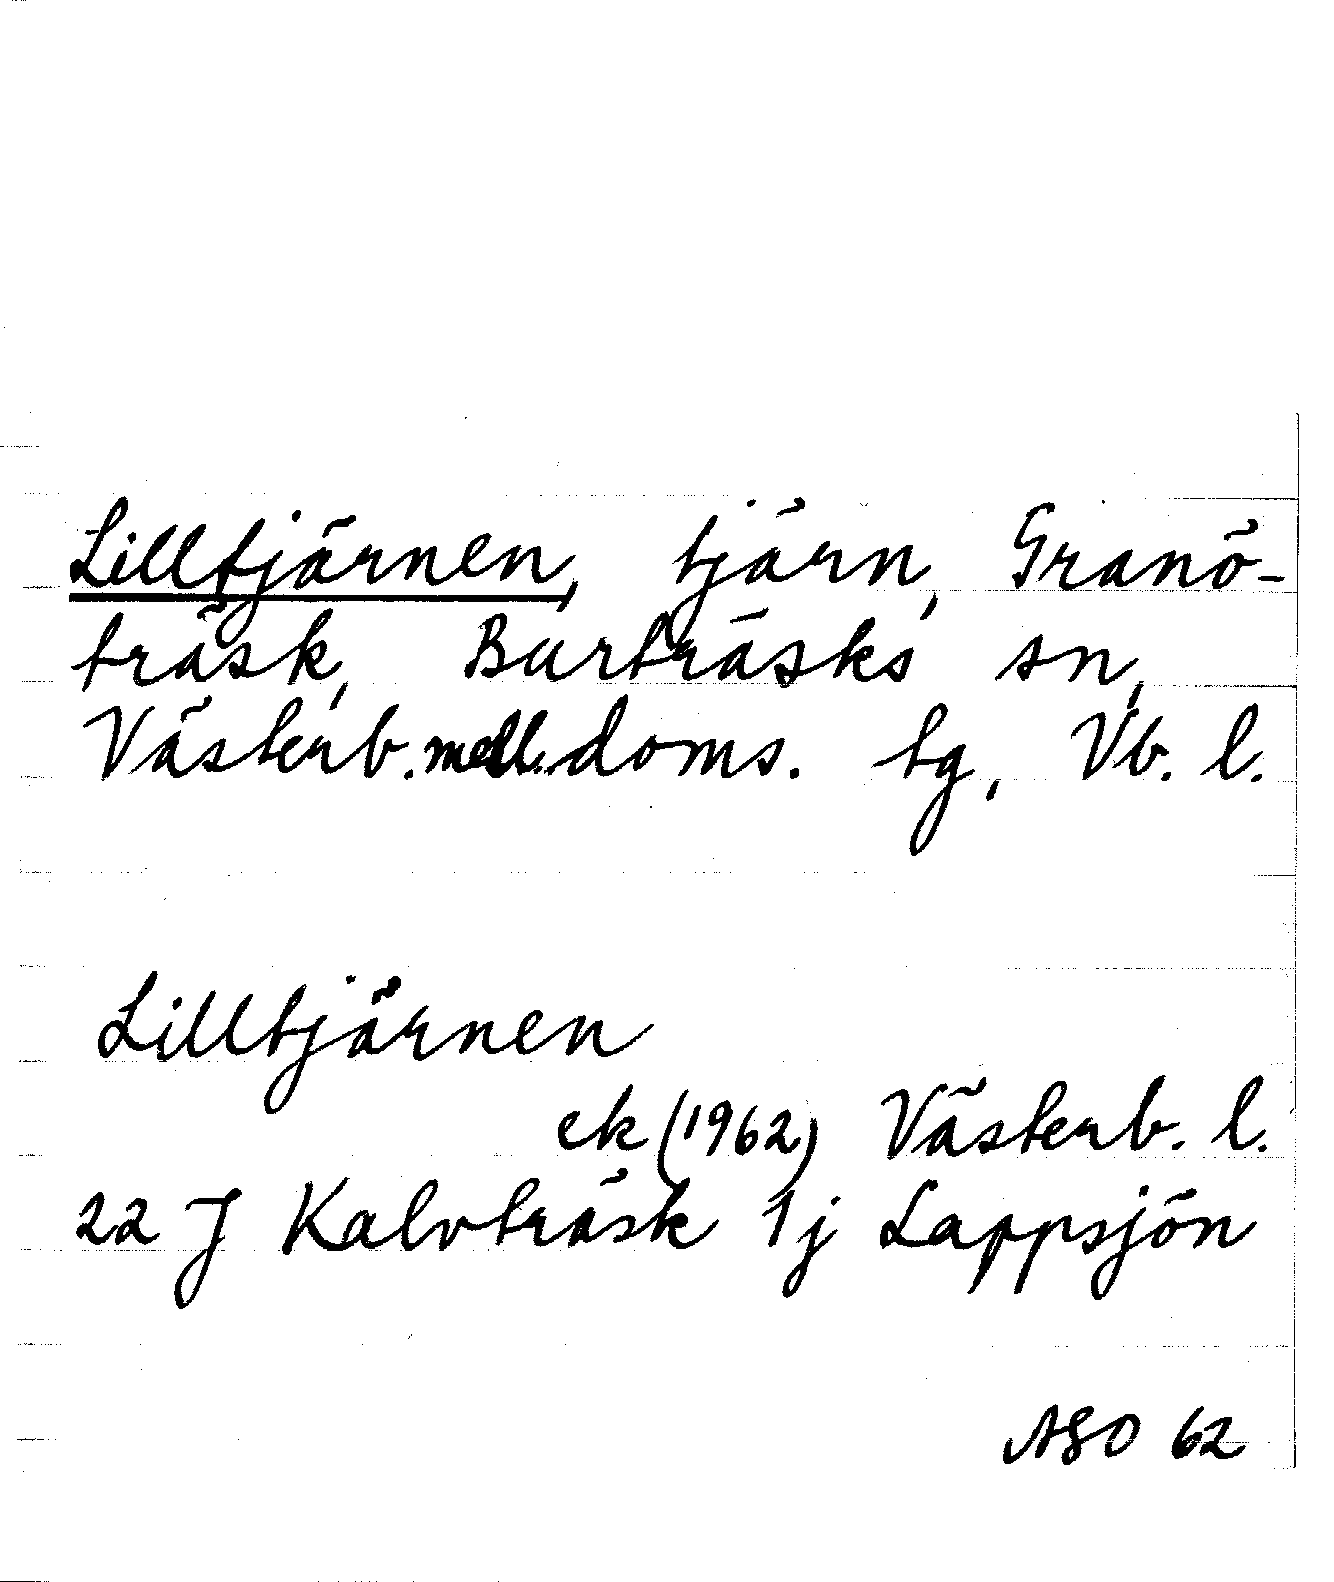 Lilltjärnen, tjärn, Granö-
träsk, Burträsks sn,
Västerb. mell. doms. tg, Vb. l.
Lilltjärnen
ek (1962) Västerb. l.
22 J Kalvträsk 1j Lappsjön
ASO 62